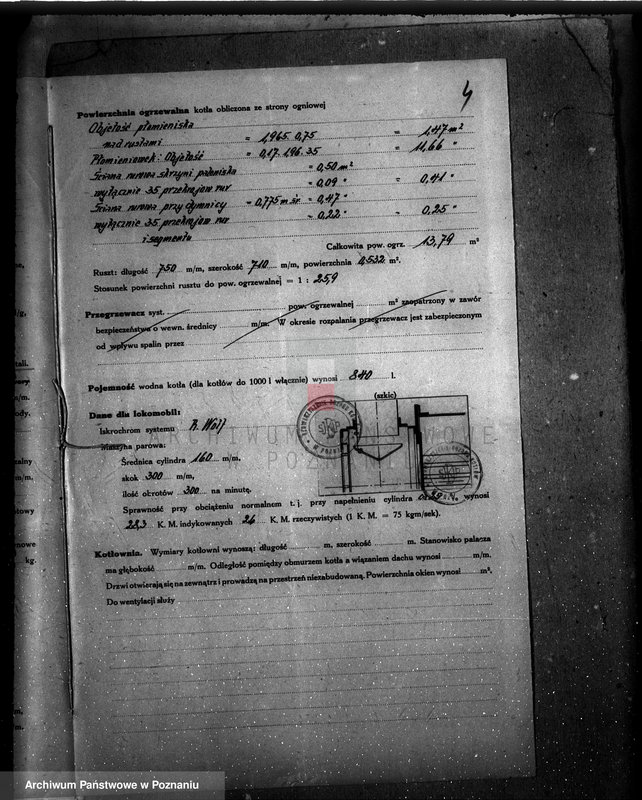 4
Powierzchnia ogrzewalna kotła obliczona ze strony ogniowej
Objętość płomieniska
nad rusłami = 1,965. 0,75 = 1,47 m²
Płomieniówek: Objętość = 0,17. 1,96. 35 = 11,66 "
Ściana rurowa skrzyni paleniska = 0,50 m²
wyłącznie 35 przekrojów rur = 0,09 " = 0,41 "
Ściana rurowa przy dymnicy = 0,775 m śr. = 0,47 "
wyłącznie 35 przekrojów rur = 0,22 " = 0,25 "
i segmentu
Całkowita pow. ogrz. 13,79 m²
Ruszt: długość 750 m/m, szerokość 710 m/m, powierzchnia 0,532 m².
Stosunek powierzchni rusztu do pow. ogrzewalnej = 1 : 25,9
Przegrzewacz syst. pow. ogrzewalnej m² zaopatrzony w zawór
bezpieczeństwa o wewn. średnicy m/m. W okresie rozpalania przegrzewacz jest zabezpieczonym
od wpływu spalin przez
Pojemność wodna kotła (dla kotłów do 1000 l włącznie) wynosi 840 l.
(szkic)
Dane dla lokomobil:
Iskrochrom systemu R. Wolf
Maszyna parowa:
ARCHIWUM PAŃSTWOWE
POZNANIU
Średnica cylindra 160 m/m,
skok 300 m/m,
ilość obrotów 300 na minutę.
Sprawność przy obciążeniu normalnem t. j. przy napełnieniu cylindra wynosi
28,3 K. M. indykowanych 26 K. M. rzeczywistych (1 K. M. = 75 kgm/sek).
Kotłownia. Wymiary kotłowni wynoszą: długość m, szerokość m. Stanowisko palacza
ma głębokość m/m. Odległość pomiędzy obmurzem kotła a wiązaniem dachu wynosi m/m.
Drzwi otwierają się na zewnątrz i prowadzą na przestrzeń niezabudowaną. Powierzchnia okien wynosi m².
Do wentylacji służy
kg.
Archiwum Państwowe w Poznaniu